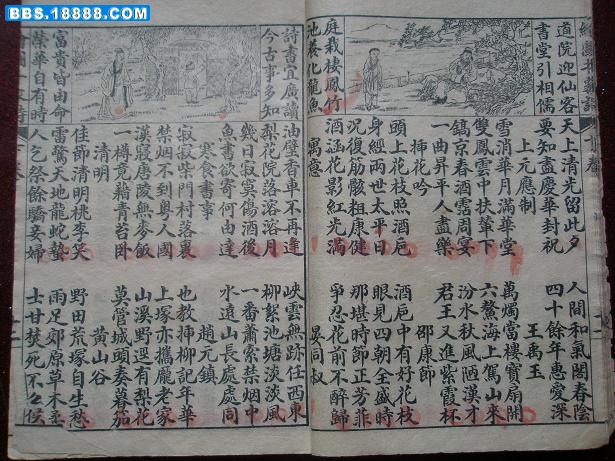 BBS.18888.COM
道院迎仙客
書堂引相儒
庭栽棲鳳竹
池養化龍魚
天上清光留此夕 人間和氣閣春陰
要知盡慶華封祝 四十餘年惠愛深
上元應制 王禹玉
雪消華月滿華堂 萬燭當樓寶扇開
雙鳳雲中扶輦下 六鰲海上駕山來
鎬京春酒霑周宴 汾水秋風陋漢才
一曲昇平人盡樂 君王又進紫霞杯
插花吟 邵康節
頭上花枝照酒卮 酒卮中有好花枝
身經兩世太平日 眼見四朝全盛時
況復筋骸粗康健 那堪時節正芳菲
酒涵花影紅光滿 爭忍花前不醉歸
寓意 晏同叔
詩書宜廣讀
今古事多知
富貴皆由命
榮華自有時
油壁香車不再逢 峽雲無跡任西東
梨花院落溶溶月 柳絮池塘淡淡風
幾日寂寞傷酒後 一番蕭索禁煙中
魚書欲寄何由達 水遠山長處處同
寒食書事 趙元鎮
寂寂柴門村落裏 也教插柳記年華
禁烟不到粵人國 上塚亦攜龐老家
漢寢唐陵無麥飯 山溪野逕有梨花
一樽竟藉青苔臥 莫管城頭奏暮笳
清明 黃山谷
佳節清明桃李笑 野田荒塚自生愁
雷驚天地龍蛇蟄 雨足郊原草木柔
人乞祭餘驕妾婦 士甘焚死不公候